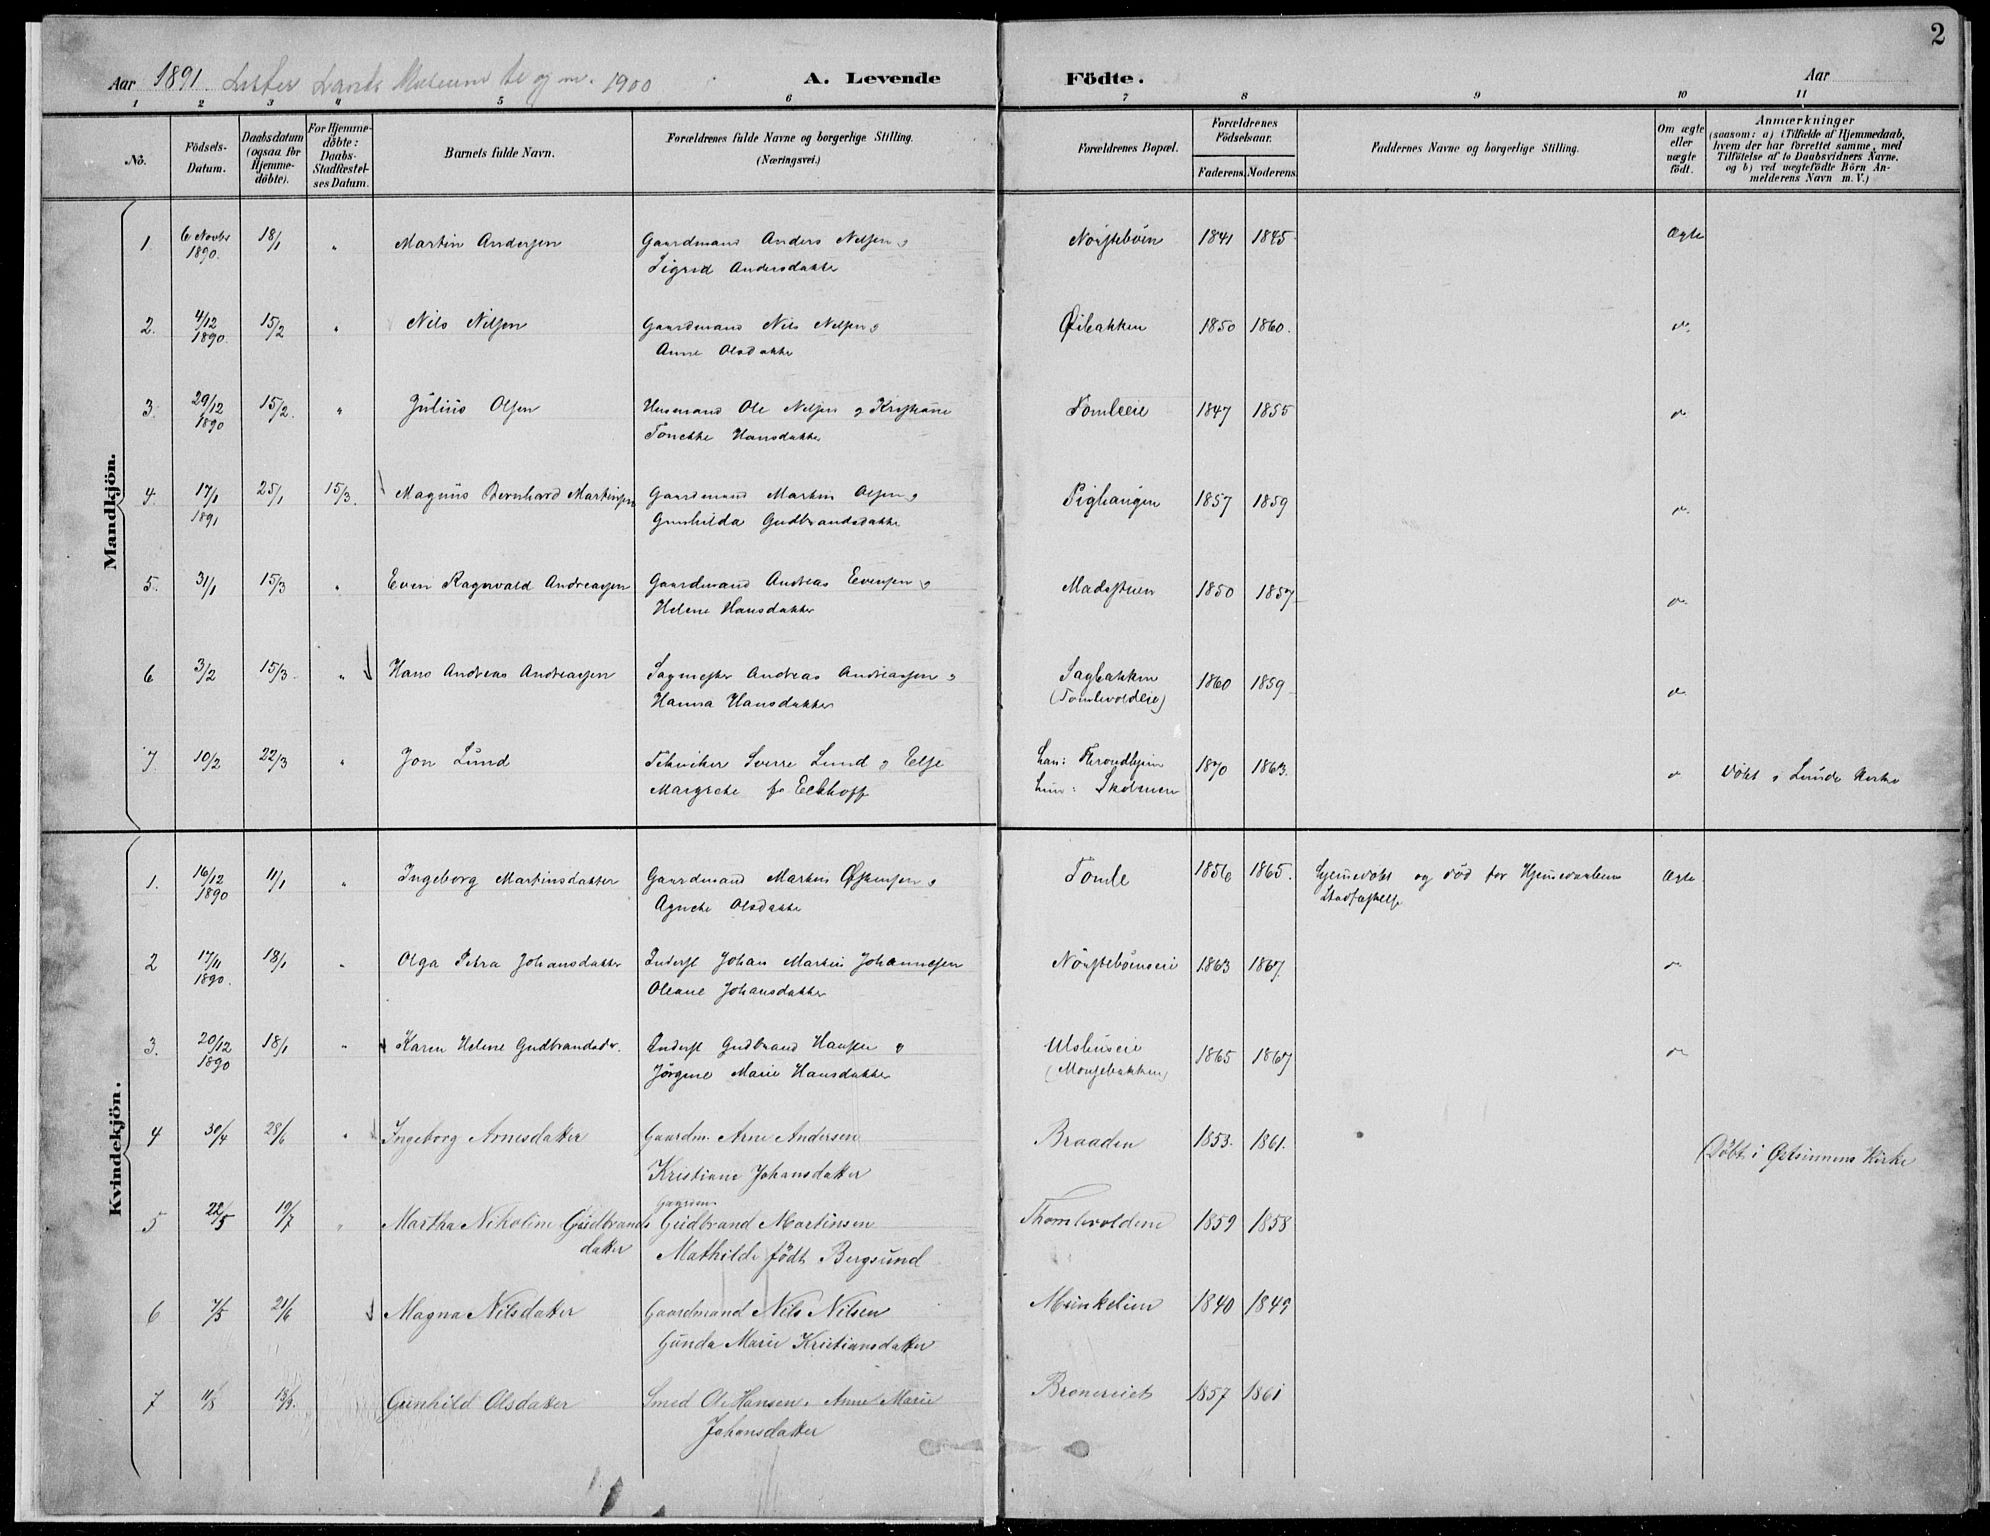 2
Aar 1891. Lister Lands Museum til og m. 1900
A. Levende Födte.
Aar
1 2 3 4 5 6 7 8 9 10 11
No.
Födsels-Datum.
Daabsdatum (ogsaa for Hjemme-döbte).
For Hjemme-döbte: Daabs-Stadfæstel-ses Datum.
Barnets fulde Navn.
Forældrenes fulde Navne og borgerlige Stilling.
(Næringsvei.)
Forældrenes Bopæl.
Forældrenes Födselsaar.
Faderens. Moderens.
Faddernes Navne og borgerlige Stilling.
Om ægte eller uægte födt.
Anmærkninger
(saasom: a) i Tilfælde af Hjemmedaab,
hvem der har forrettet samme, med
Tilföielse af to Daabsvidners Navne.
og b) ved uægtefödte Börn An-
melderens Navn m. V.)
Mandkjön.
1. 6 Novbr 1890. 18/1 " Martin Andersen Gaardmand Anders Nilsen og Nørstebøen 1841 1845 Ægte
Sigrid Andersdatter
2. 4/12 1890. 15/2 " Nils Nilsen Gaardmand Nils Nilsen og Øibakken 1850 1860. do
Anne Olsdatter
3. 29/12 1890 15/2. " Julius Olsen Husmand Ole Nilsen og Kristiane Tomleeie 1847 1855 do
Tonette Hansdatter
4. 17/1 1891 25/1 15/3. Magnus Bernhard Martinsen Gaardmand Martin Olsen og Pighaugen 1857 1859 do
Gunhilda Gudbrandsdatter
5. 31/1 15/3 " Even Ragnvald Andreasen Gaardmand Andreas Evensen og Madsstuen 1850 1857 do
Helene Hansdatter
6 3/2 15/3. " Hans Andreas Andreasen Sagmester Andreas Andreasen og Sagbakken 1860 1859 do
Hanna Hansdatter (Tomlevoldeie)
7. 10/2 22/3 " Jon Lund Tekniker Sverre Lund og Else han: Throndhjem 1870 1863. do Døbt i Lunde Kirke
Margrete f. Eckhoff hun: Skøien
Kvindekjön.
1. 16/12 1890 11/1 " Ingeborg Martinsdatter Gaardmand Martin Østensen og Tomle 1856 1865. Hjemmedøbt og død før Hjemmedaabens Ægte
Agnete Olsdatter Stadfæstelse
2 17/11 1890. 18/1 " Olga Petra Johansdatter Inderst Johan Martin Johannesen Nørstebøenseie 1863 1867. do
Oleane Johansdatter
3. 20/12 1890 18/1 " Karen Helene Gudbrandsdr. Inderst Gudbrand Hansen og Ulshuseie 1865 1867 do
Jørgine Marie Hansdatter (Monsebakken)
4 30/4 28/6 " Ingeborg Arnesdatter Gaardm. Arne Andersen Braaden 1853. 1861. Døbt i Østsinnens Kirke
Kristiane Johansdatter
5 22/5 19/7 " Martha Nikoline Gudbrands Gaardm. Gudbrand Martinsen Thomlevolden 1859 1858
datter Mathilde født Bergsund
6 7/5 21/6 Magna Nilsdatter Gaardmand Nils Nilsen Munkelien 1840 1849
Gunda Marie Kristiansdatter
7 11/8 13/9. Gunhild Olsdatter Smed Ole Hansen. Anne Marie Bronereiet 1857 1861
Johansdatter